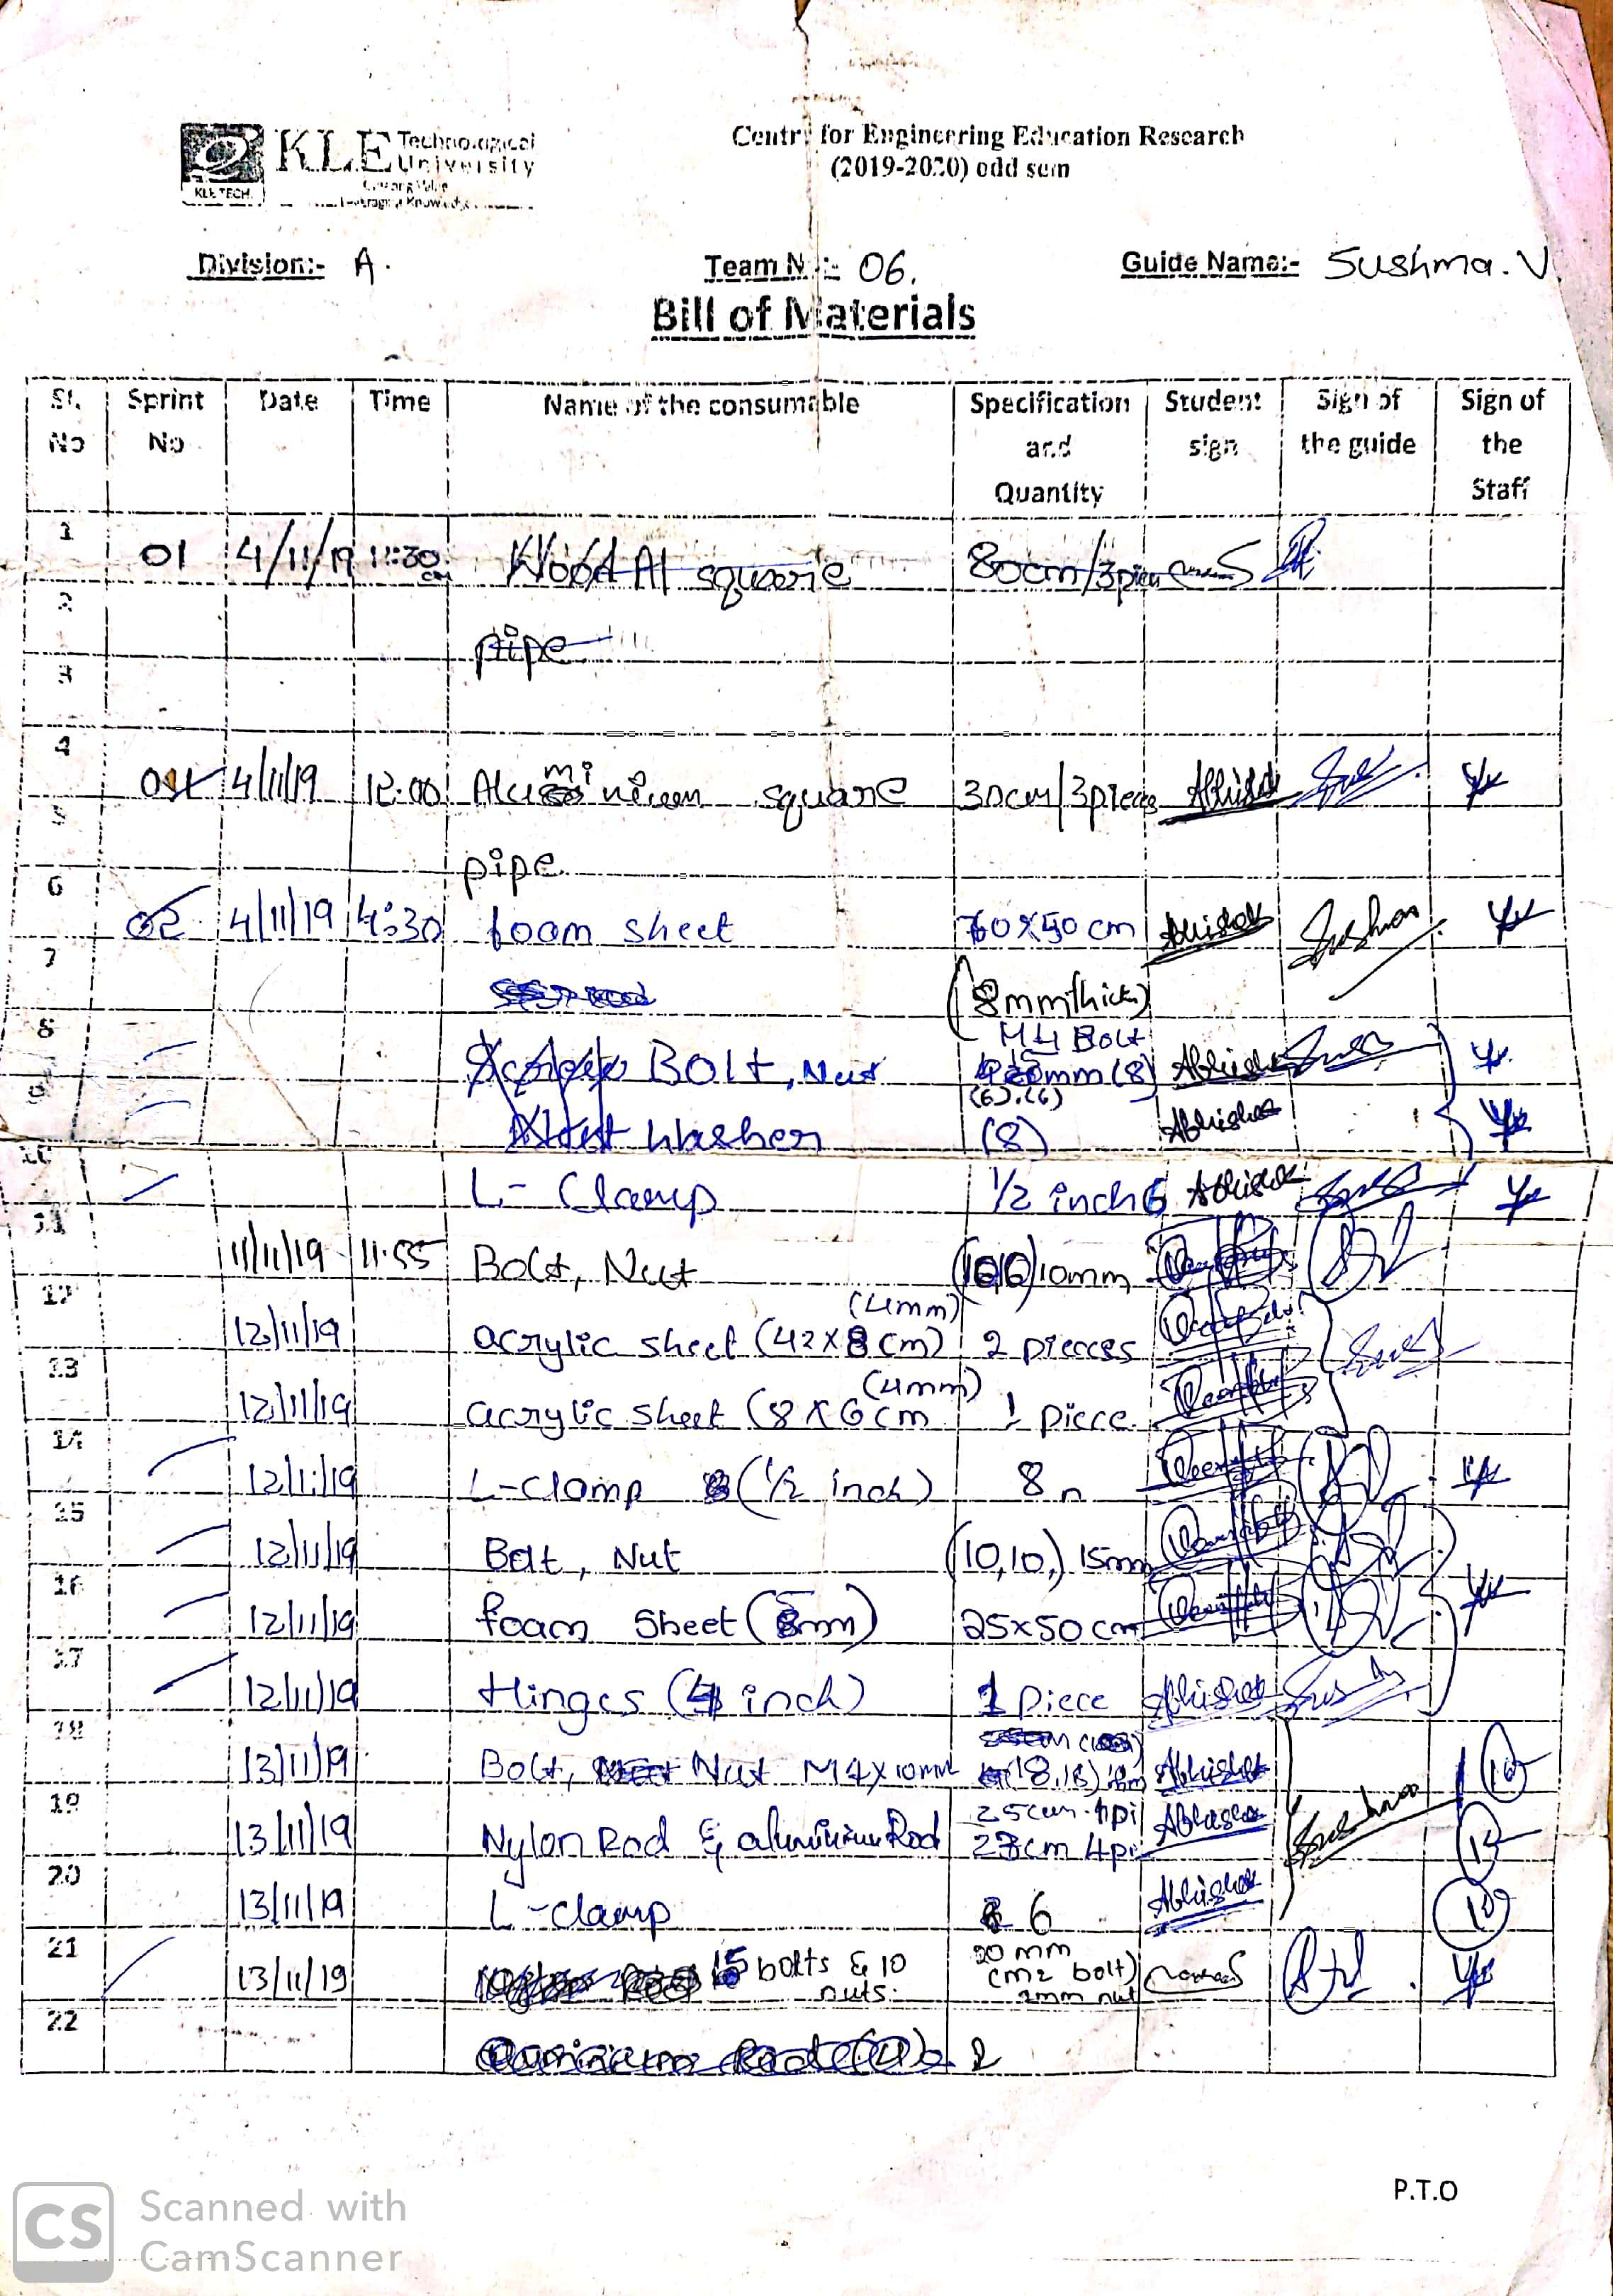 KLE Technological University
KLE TECH
Centre for Engineering Education Research
(2019-2020) odd sem
Division:- A.
Team No:- 06.
Guide Name:- Sushma. V.
Bill of Materials
Sl. No Sprint No Date Time Name of the consumable Specification and Quantity Student sign Sign of the guide Sign of the Staff
1 01 4/11/19 11:30 Al square 80cm/3pieces
2 pipe
3
4 01 4/11/19 12:00 Aluminium square 30cm/3pieces Abhishek
5 pipe
6 02 4/11/19 4:30 foam sheet 70x50 cm Abhishek Sushma
7 (8mmthick)
8 BOLT, Nut M4 Bolt mm (8) Abhishek
(6).(6)
9 washer (8) Abhishek
10 L- Clamp 1/2 inch 6 Abhishek
11 11/11/19 11.55 Bolt, Nut 10mm
12 12/11/19 acrylic sheet (42x8cm) (4mm) 2 pieces
13 12/11/19 acrylic sheet (8x6cm (4mm) 1 piece
14 12/11/19 L-clamp (1/2 inch) 8
15 12/11/19 Bolt, Nut (10,10,) 15mm
16 12/11/19 foam sheet (mm) 25x50 cm
17 12/11/19 Hinges (4 inch) 1 Piece Abhishek
18 13/11/19 Bolt, Nut M4x10mm (18,18) Abhishek
19 13/11/19 Nylon Rod & aluminium Rod 25cm 4pi Abhishek Sushma
cm 4pi
20 13/11/19 L-clamp 6 Abhishek
21 13/11/19 15 bolts & 10 nuts. 20 mm (m2 bolt) 2mm nut
22
P.T.O
CS Scanned with CamScanner